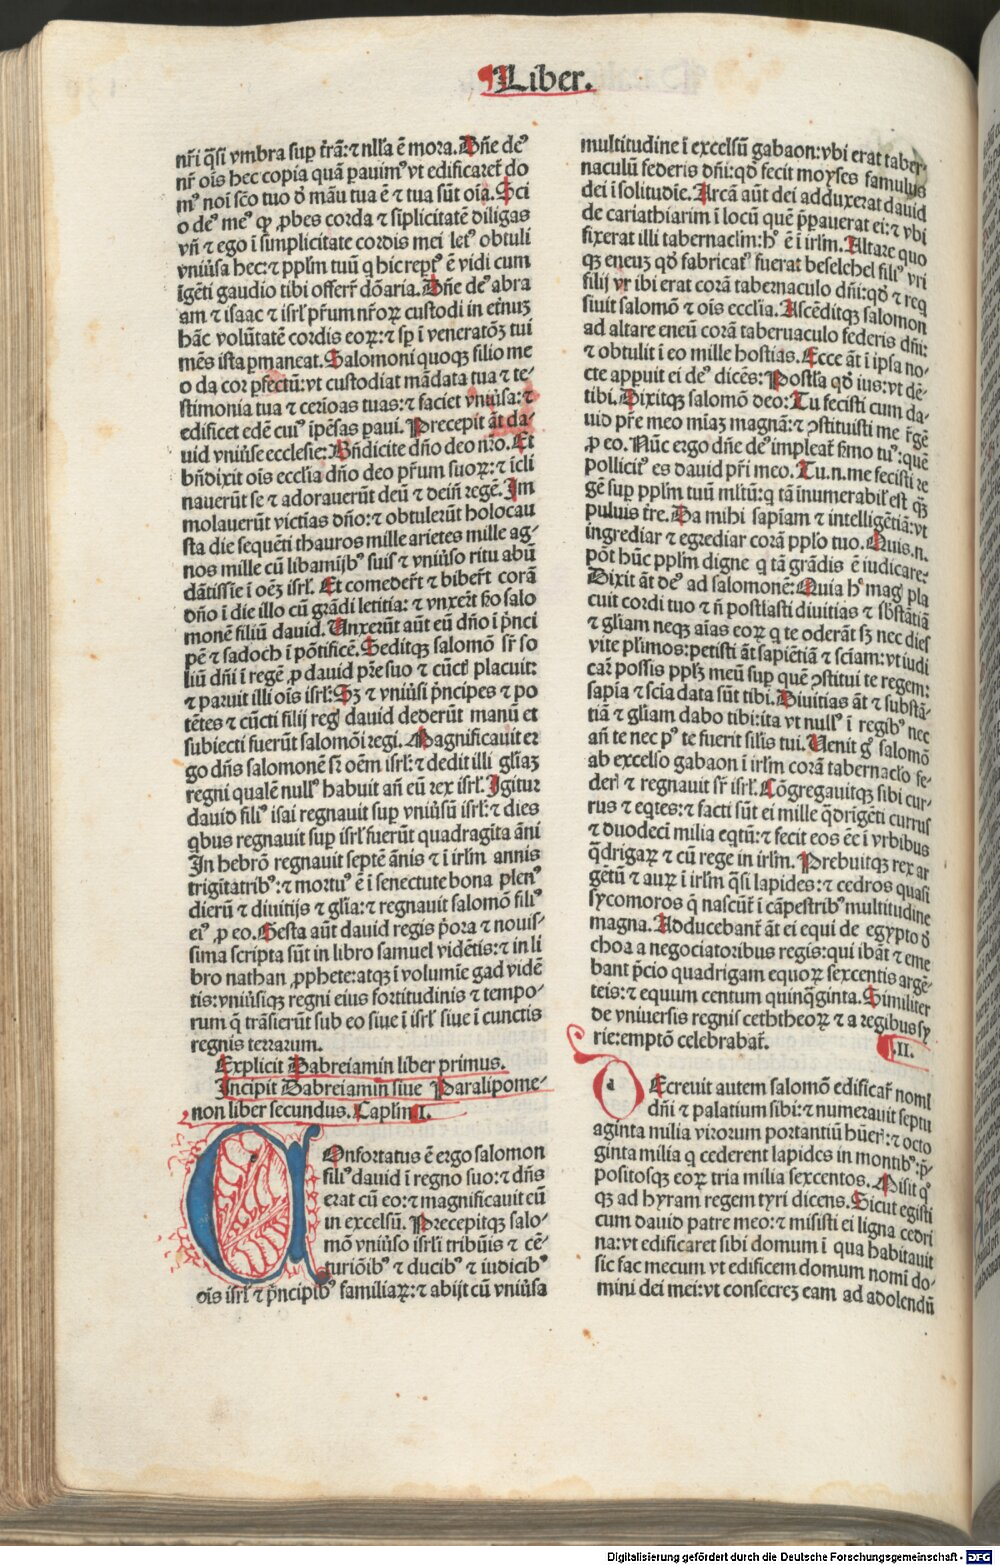 Liber.
nr̄i q̄si vmbra sup t̄rā: ⁊ nll̓a ē mora. Dn̄e deꝰ
nr̄ oīs hec copia quā ꝑauimꝰ vt edificaret̄ do
mꝰ noī sc̄o tuo d̓ māu tua ē ⁊ tua sūt oīa. Sci
o deꝰ meꝰ qꝫ ꝓbes corda ⁊ sīplicitatē diligas
vn̄ ⁊ ego ī simplicitate cordis mei letꝰ obtuli
vniūsa hec: ⁊ pplm̄ tuū q hic reptꝰ ē vidi cum
īgēti gaudio tibi offerr̄ dōaria. Dn̄e deꝰ abra
am ⁊ isaac ⁊ isrl̓ pr̄um nr̄oꝝ custodi in et̄nuꝫ
hāc volūtatē cordis eoꝝ: ⁊ sp̄ ī veneratōꝫ tui
mēs ista ꝑmaneat. Salomoni quoqꝫ filio me
o da cor ꝑfectū: vt custodiat mādata tua ⁊ te-
stimonia tua ⁊ cerīoas tuas: ⁊ faciet vniūsa: ⁊
edificet edē cuiꝰ īpēsas paui. Precepit āt da-
uid vniūse ecclesie: Bn̄dicite dn̄o deo nr̄o. Et
bn̄dixit oīs eccl̓ia dn̄o deo pr̄um suoꝝ: ⁊ īcli
nauerūt se ⁊ adorauerūt deū ⁊ dein̄ regē. Im
molauerūt victīas dn̄o: ⁊ obtulerūt holocau
sta die sequēti thauros mille arietes mille ag-
nos mille cū libamijbꝰ suis ⁊ vniūso ritu abū
dātissīe ī oēꝫ isrl̓. Et comeder̄t ⁊ biber̄t corā
dn̄o ī die illo cū grādi letitia: ⁊ vnxer̄t sc̓do salo
monē filiū dauid. Unxerūt aūt eū dn̄o ī p̄nci
pē ⁊ sadoch ī pōtificē. Seditqꝫ salomō sr̄ so
liū dn̄i ī regē ꝓ dauid pr̄e suo ⁊ cūctꝭ placuit:
⁊ paruit illi oīs isrl̓: Sꝫ ⁊ vniūsi p̄ncipes ⁊ po
tētes ⁊ cūcti filij regꝭ dauid dederūt manū et
subiecti fuerūt salomōi regi. Magnificauit er
go dn̄s salomonē sr̄ oēm isrl̓: ⁊ dedit illi gl̓iaꝫ
regni qualē nullꝰ habuit an̄ eū rex isrl̓. Igitur
dauid filiꝰ isai regnauit sup vniūsū isrl̓: ⁊ dies
qbus regnauit sup isrl̓ fuerūt quadragīta āni
In hebrō regnauit septē ānis ⁊ ī irl̓m annis
trigītatribꝰ: ⁊ mortuꝰ ē ī senectute bona plenꝰ
dierū ⁊ diuitijs ⁊ gl̓ia: ⁊ regnauit salomō filiꝰ
eiꝰ ꝓ eo. Gesta aūt dauid regis p̄ora ⁊ nouis-
sima scripta sūt in libro samuel vidētis: ⁊ in li
bro nathan ꝓphete: atqꝫ ī volumīe gad vidē
tis: vniūsiqꝫ regni eius fortitudinis ⁊ tempo-
rum q̄ trāsierūt sub eo siue ī isrl̓ siue ī cunctis
regnis terrarum.
Explicit Dabreiamin liber primus.
Incipit Dabreiamin siue Paralipome-
non liber secundus. Caplm̄ I.
COnfortatus ē ergo salomon
filiꝰ dauid ī regno suo: ⁊ dn̄s
erat cū eo: ⁊ magnificauit eū
in excelsū. Precepitqꝫ salo-
mō vniūso isrl̓i tribūis ⁊ cē-
turiōibꝰ ⁊ ducibꝰ ⁊ iudicibꝰ
oīs isrl̓ ⁊ p̄ncipibꝰ familiaꝝ: ⁊ abijt cū vniūsa
multitudine ī excelsū gabaon: vbi erat taber-
naculū federis dn̄i: qd̓ fecit moyses famulus
dei ī solitudīe. Arcā aūt dei adduxerat dauid
de cariathiarim ī locū quē p̄pauerat ei: ⁊ vbi
fixerat illi tabernaclm̄: hꝰ ē ī irl̓m. Altare quo
qꝫ eneuꝫ qd̓ fabricatꝰ fuerat beselehel filiꝰ vri
filij vr ibi erat corā tabernaculo dn̄i: qd̓ ⁊ req
siuit salomō ⁊ oīs eccl̓ia. Ascēditqꝫ salomon
ad altare eneū corā tabernaculo federis dn̄i:
⁊ obtulit ī eo mille hostias. Ecce āt ī ipsa no-
cte appuit ei deꝰ dicēs: Postl̓a qd̓ ius: vt dē-
tibi. Dixitqꝫ salomō deo: Tu fecisti cum da-
uid pr̄e meo mīaꝫ magnā: ⁊ ꝯstituisti me r̄gē
ꝓ eo. Nūc ergo dn̄e deꝰ impleat̄ ẜmo tuꝰ: quē
pollicitꝰ es dauid pr̄i meo. Tu .n. me fecisti re
gē sup pplm̄ tuū ml̓tū: q tā inumerabil̓ est q̄ꝫ
puluis t̄re. Da mihi sapīam ⁊ intelligētiā: vt
ingrediar ⁊ egrediar corā ppl̓o tuo. Quis .n.
pōt hūc pplm̄ digne q tā grādis ē iudicare:
Dixit āt deꝰ ad salomonē: Quia hꝰ magꝭ pla
cuit cordi tuo ⁊ n̄ postlasti diuitias ⁊ sb̓stātiā
⁊ gl̓iam neqꝫ aīas eoꝝ q te oderāt sꝫ nec dies
vite pl̓imos: petisti āt sapiētiā ⁊ sciam: vt iudi
car̄ possis pplꝫ meū sup quē ꝯstitui te regem:
sapīa ⁊ scīa data sūt tibi. Diuitias āt ⁊ substā-
tiā ⁊ gl̓iam dabo tibi: ita vt nullꝰ ī regibꝰ nec
an̄ te nec pꝰ te fuerit sil̓is tui. Uenit gͦ salomō
ab excelso gabaon ī irl̓m corā tabernacl̓o fe-
derꝭ ⁊ regnauit sr̄ isrl̓. Cōgregauitqꝫ sibi cur-
rus ⁊ eqtes: ⁊ facti sūt ei mille q̄drīgēti currus
⁊ duodecī milia eqtū: ⁊ fecit eos ēē ī vrbibus
q̄drigaꝝ ⁊ cū rege in irl̓m. Prebuitqꝫ rex ar
gētū ⁊ auꝝ ī irl̓m q̄si lapides: ⁊ cedros quasi
sycomoros q̄ nascūt̄ ī cāpestribꝰ multitudine
magna. Adducebant̄ āt ei equi de egypto d̓
choa a negociatoribus regis: qui ibāt ⁊ eme
bant p̄cio quadrigam equoꝝ sexcentis argē-
teis: ⁊ equum centum quinq̄ginta. Similiter
de vniuersis regnis ceththeoꝝ ⁊ a regibus sy
rie: emptō celebrabat̄. .II.
DEcreuit autem salomō edificar̄ nomī
dn̄i ⁊ palatium sibi: ⁊ numerauit septu
aginta milia virorum portantiū hūerꝭ: ⁊ octo
ginta milia q cederent lapides in montibꝰ: p̄
positosqꝫ eoꝝ tria milia sexcentos. Misit qͦ
qꝫ ad hyram regem tyri dicens. Sicut egisti
cum dauid patre meo: ⁊ misisti ei ligna cedri
na: vt edificaret sibi domum ī qua habitauit
sic fac mecum vt edificem domum nomī do-
mini dei mei: vt consecreꝫ eam ad adolendū
Digitalisierung gefördert durch die Deutsche Forschungsgemeinschaft - DFG